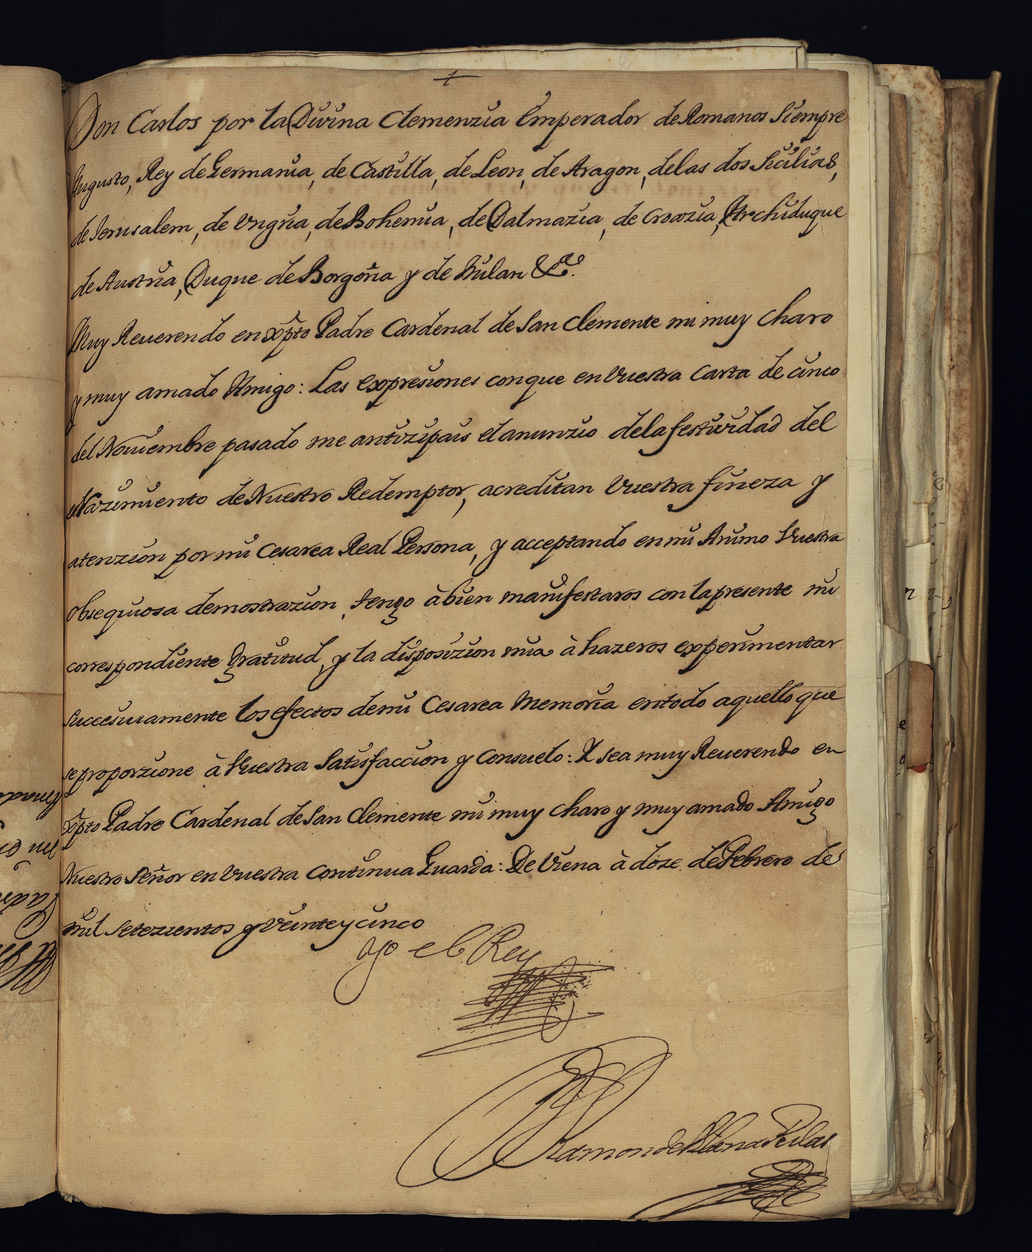 +
Don Carlos por la Divina Clemenzia Emperador de Romanos Siempre
Augusto, Rey de Germania, de Castilla, de Leon, de Aragon, delas dos Sicilias,
de Jerusalem, de Vngria, de Bohemia, de Dalmazia, de Croazia, Archiduque
de Austria, Duque de Borgoña y de Milan &c.ª
Muy Reuerendo en xp̃to Padre Cardenal de San Clemente mi muy Charo
y muy amado Amigo: Las expresiones conque en Vuestra Carta de cinco
del Nouiembre pasado me antizipais el anunzio dela festiuidad del
Nazimiento de Nuestro Redemptor, acreditan Vuestra fineza y
atenzion por mi Cesarea Real Persona, y acceptando en mi Animo Vuestra
obsequiosa demostrazion, tengo à bien manifestaros con la presente mi
correspondiente gratitud, y la disposizion mia à hazeros experimentar
succesiuamente los efectos de mi Cesarea Memoria en todo aquello que
se proporzione à Vuestra Satisfaccion y Consuelo: Y sea muy Reuerendo en
xp̃to Padre Cardenal de San Clemente mi muy Charo y muy amado Amigo
Nuestro Señor en Vuestra Continua Guarda: De Viena à doze de Febrero de
mil Setezientos y Veinte y cinco
yo el Rey
Ramon de Vilana Perlas